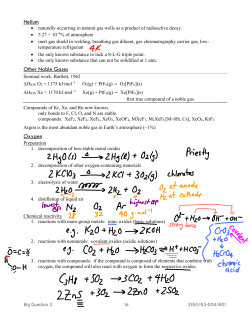 Helium
• naturally occurring in natural gas wells as a product of radioactive decay.
• 5.27 × 10⁻⁴% of atmosphere
• inert gas shield in welding, breathing gas diluent, gas chromatography carrier gas, low-
temperature refrigerant 4K
• the only known substance to lack a S-L-G triple point.
• the only known substance that can not be solidified at 1 atm.
Other Noble Gases
Seminal work: Bartlett, 1962
O₂(g) + PtF₆(g) → O₂[PtF₆](s)
Xe(g) + PtF₆(g) → Xe[PtF₆](s)
first true compound of a noble gas.
Compounds of Kr, Xe, and Rn now known.
only bonds to F, Cl, O, and N are stable.
Argon is the most abundant noble gas in Earth's atmosphere (~1%)
Oxygen
Preparation
1. decomposition of less stable metal oxides
2HgO(s) Δ→ 2Hg(ℓ) + O₂(g) Priestly
2. decomposition of other oxygen-containing materials
2KClO₃ Δ→ 2KCl + 3O₂(g) chlorates
3. electrolysis of water
2H₂O → 2H₂ + O₂ O₂ at anode
H₂ at cathode
4. distillation of liquid air
lowest bp N₂ O₂ Ar highest bp
28 32 40 g·mol⁻¹
Chemical reactivity
1. reactions with main group metals: ionic oxides (basic solutions)
e.g. K₂O + H₂O → 2KOH
O²⁻ + H₂O → OH⁻ + OH⁻
strong base
2. reactions with nonmetals: covalent oxides (acidic solutions)
e.g. CO₂ + H₂O → H₂CO₃ H⁺ + HCO₃⁻
O=C=O
H
CrO₃
+ H₂O
↓
H₂CrO₄
chromic
acid
3. reactions with compounds: if the compound is composed of elements that combine with
oxygen, the compound will also react with oxygen to form the respective oxides.
C₃H₈ + 5O₂ → 3CO₂ + 4H₂O
2ZnS + 3O₂ → 2ZnO + 2SO₂
Big Question 3 16 3150:153-004/801